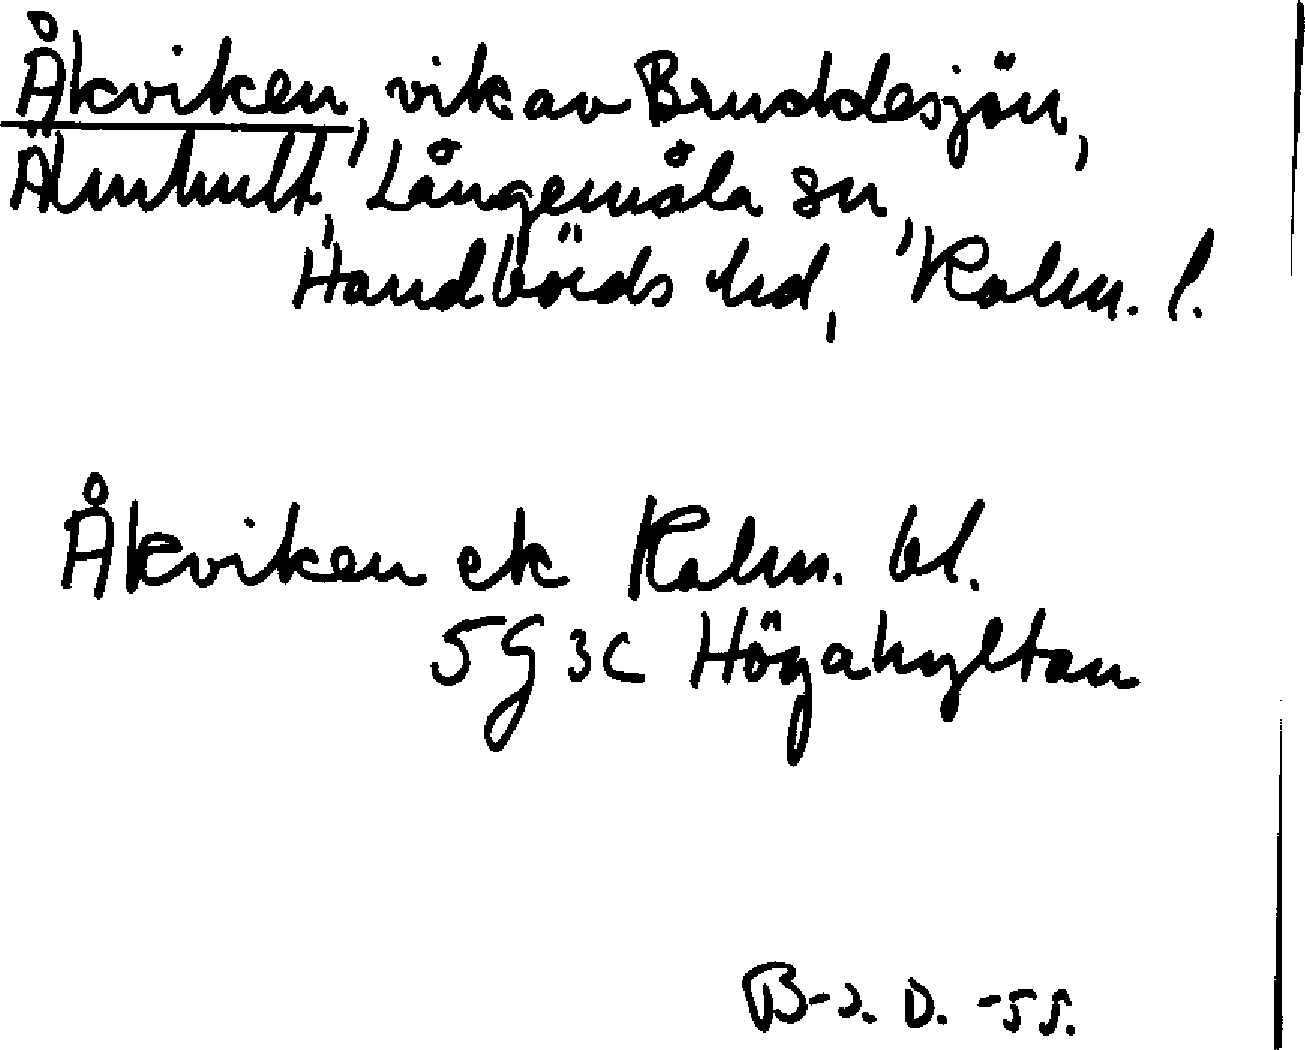 Åkviken, vik av Bruddesjön,
Älmhult, Långemåla sn,
Handbörds hd, Kalm. l.
Åkviken ek Kalm. bl.
5G 3c Högahyltan
B-s. D. -55.